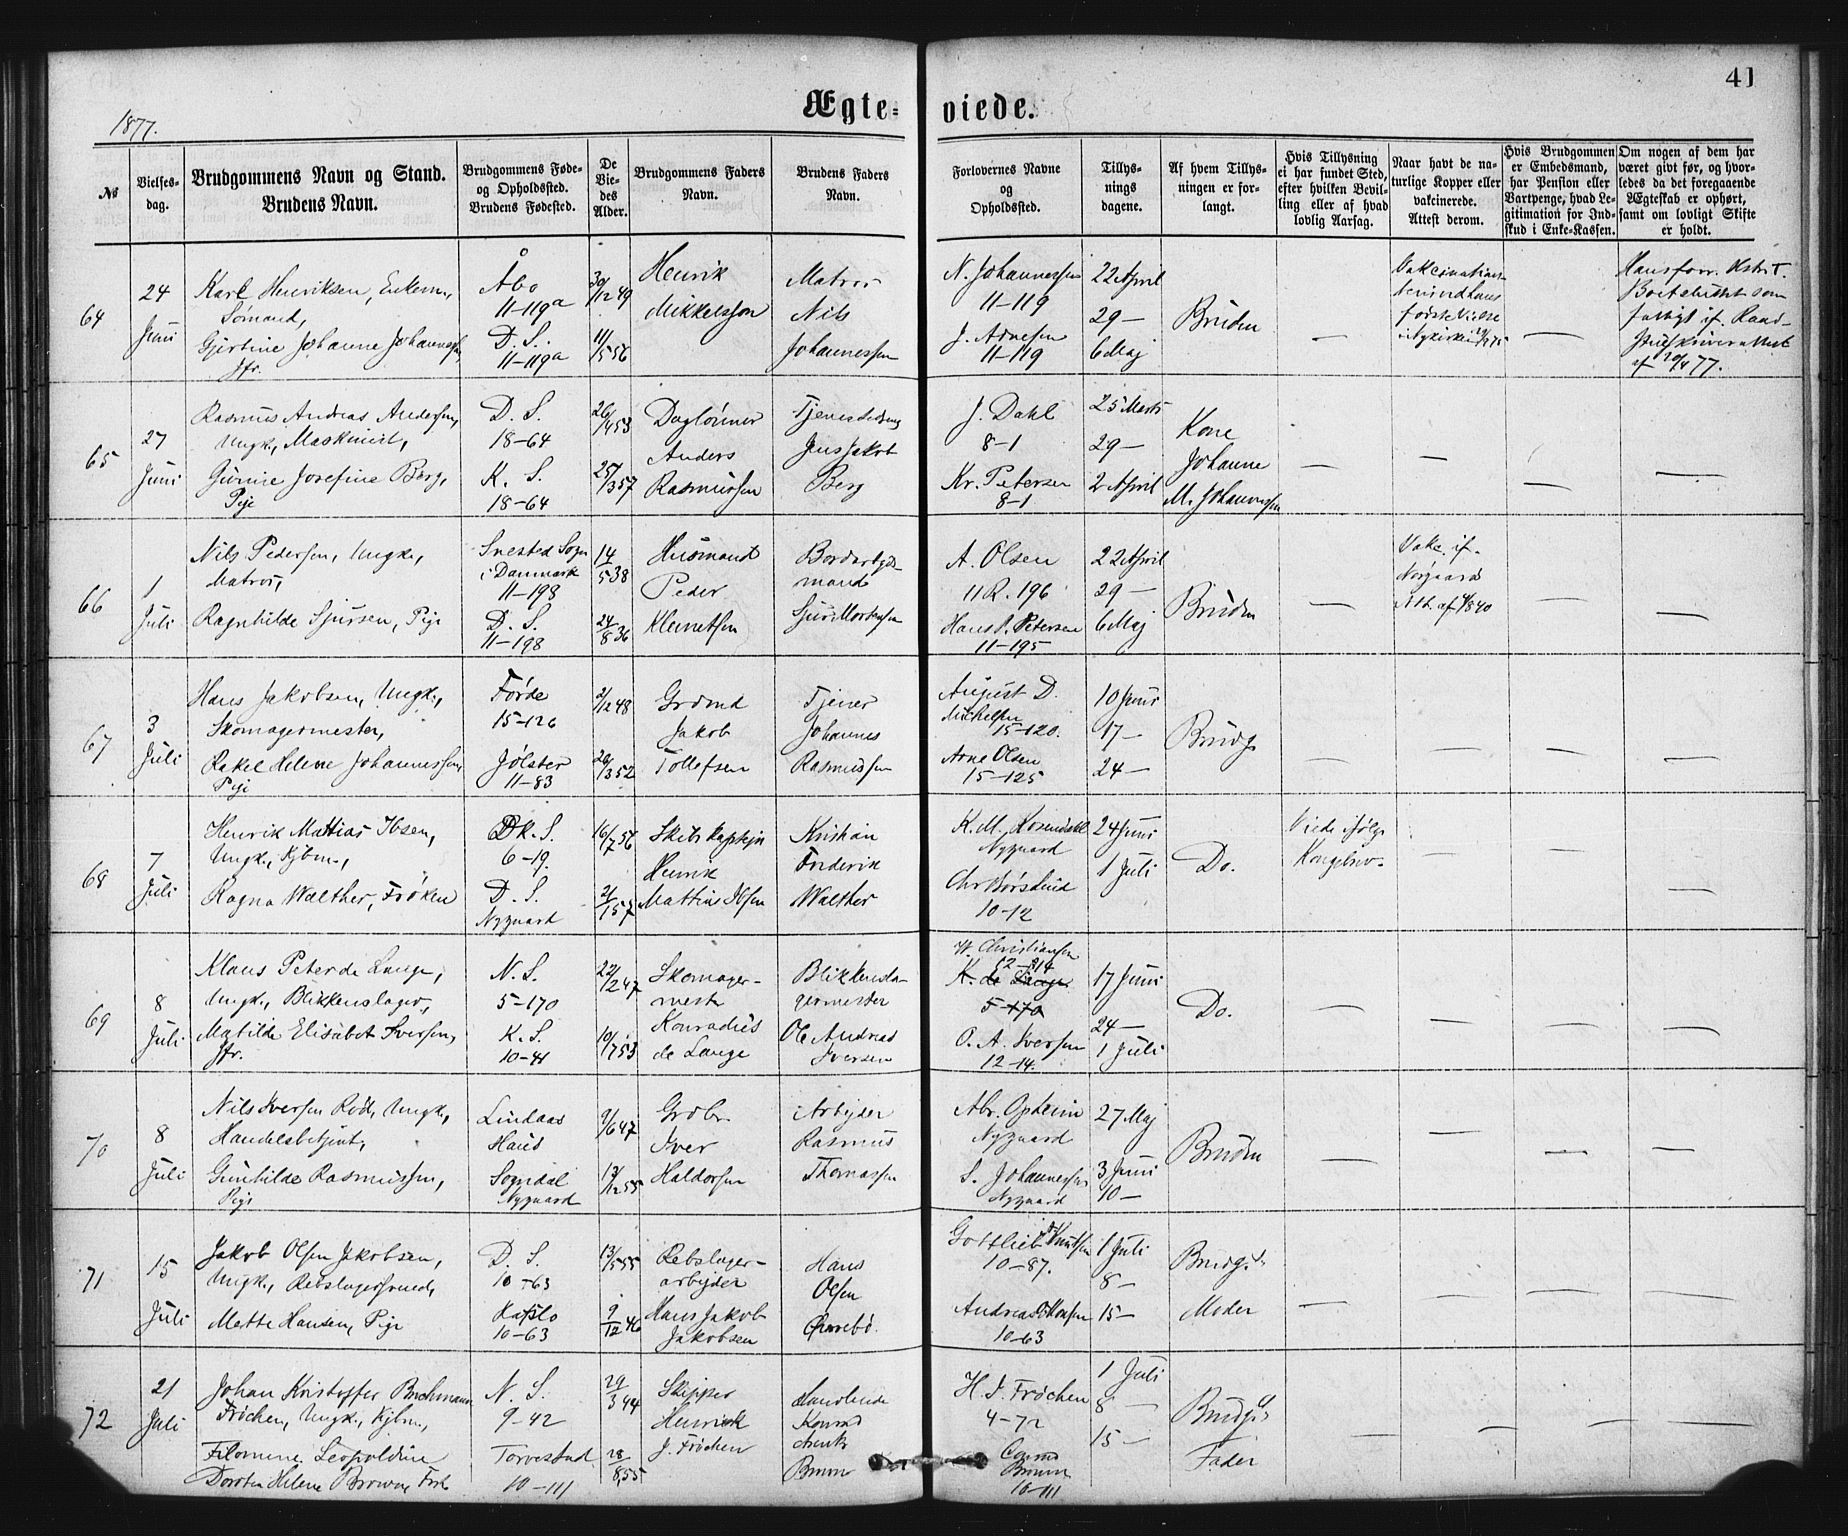 41
Ægte-
viede.
1877.
№
Vielses-
dag.
Brudgommens Navn og Stand.
Brudens Navn.
Brudgommens Føde-
og Opholdssted.
Brudens Fødested.
De
Vie-
des
Alder.
Brudgommens Faders
Navn.
Brudens Faders
Navn.
Forlovernes Navne
og
Opholdssted.
Tillys-
nings
dagene.
Af hvem Tillys-
ningen er for-
langt.
Hvis Tillysning
ei har fundet Sted,
efter hvilken Bevil-
ling eller af hvad
lovlig Aarsag.
Naar havt de na-
turlige Kopper eller
vakcinerede.
Attest derom.
Hvis Brudgommen
er Embedsmand,
har Pension eller
Vartpenge, hvad Le-
gitimation for Ind-
skud i Enke-Kassen.
Om nogen af dem har
været givt før, og hvor-
ledes da det foregaaende
Ægteskab er ophørt,
samt om lovligt Skifte
er holdt.
64
24
Juni
Karl Henriksen, Enkem.,
Sømand,
Gjertine Johanne Johannessen,
Jfr.
Åbo
11-119a
D. S.
11-119a
30/12 49
11/5 56
Henrik
Mikkelsson
Matros
Nils
Johannessen
N. Johannessen
11-119
J. Arnesen
11-119
22 April
29 —
6 Maj
Bruden
—
—
af 20/4 77.
65
27
Juni
Rasmus Andreas Andersen,
Ungk., Maskinist,
Gurine Josefine Berg,
Pige
D. S.
18-64
K. S.
18-64
26/4 53
25/3 57
Daglønner
Anders
Rasmussen
Jens Jakob
Berg
J. Dahl
8-1
Kr. Petersen
8-1
25 Marts
29 —
2 April
Kone
Johanne
M. Johannessen
—
—
—
—
66
1
Juli
Nils Pedersen, Ungk.,
Matros,
Ragnhilde Sjursen, Pige
Snested Sogn
i Danmark
11-198
D. S.
11-198
14/5 38
24/8 36
Husmand
Peder
Klemetsen
Bordarbejds-
mand
Sjur Mortensen
A. Olsen
11 R. 196
Hans P. Petersen
11-195
22 April
29 —
6 Maj
Bruden
—
Vakc. if.
Nørgaards
Att. af 4/8 40
—
—
67
3
Juli
Hans Jakobsen, Ungk.,
Skomagermester,
Rakel Helene Johannessen,
Pige
Førde
15-126
Jølster
11-83
2/12 48
26/3 52
Grdmd
Jakob
Tollefsen
Tjener
Johannes
Rasmussen
August D.
Michelsen
15-120.
Arne Olsen
15-125
10 Juni
17 —
24 —
Brudg.
—
—
—
—
68
7
Juli
Henrik Mattias Ibsen,
Ungk., Kjbm.,
Ragna Walther, Frøken
K. S.
6-19.
D. S.
Nygaard
16/7 56
2/1 57
Skibskaptejn
Henrik
Mattias Ibsen
Kristian
Frederik
Walther
K. M. Rosendahl
Nygaard
Chr Børslind
10-12
24 Juni
1 Juli
Do.
Viede ifølge
Kongebrev.
—
—
—
69
8
Juli
Klaus Peter de Lange,
Ungk., Blikkenslager,
Matilde Elisabet Iversen,
Jfr.
N. S.
5-170
K. S.
10-41
22/2 47
10/7 53
Skomager-
mester
Konradus
de Lange
Blikkensla-
germester
Ole Andreas
Iversen
W. Christiansen
12-14
K. de Lange
5-170
O. A. Iversen
12-14.
17 Juni
24 —
1 Juli
Do.
—
—
—
—
70
8
Juli
Nils Iversen Rød, Ungk.,
Handelsbetjent,
Gunhilde Rasmussen,
Pige
Lindaas
Haus
Sogndal
Nygaard
9/6 47
13/12 55
Grdbr.
Iver
Haldorsen
Arbejder
Rasmus
Thomassen
Abr. Opheim
Nygaard
S. Johannessen
Nygaard
27 Maj
3 Juni
10 —
Bruden
—
—
—
—
71
15
Juli
Jakob Olsen Jakobsen,
Ungk., Rebslagersvend,
Mette Hansen, Pige
D. S.
10-63
10-63
13/5 55
9/12 46
Rebslager-
arbejder
Hans Jakob
Jakobsen
Hans
Olsen
Øvrebø.
Gottlieb Knutsen
10-87.
Andreas Hansen
10-63
1 Juli
8 —
15 —
Brudg.s
Moder
—
—
—
—
72
21
Juli
Johan Kristoffer Buchmann
Fröchen, Ungk., Kjbm.,
Filomene Leopoldine
Dorotea Helene Brown, Frk.
N. S.
9-42
Torvestad
10-111
29/3 44
28/8 55
Skipper
Henrich
J. Fröchen
Konrad
H. J. Fröchen
4-72
10-111
1 Juli
8 —
15 —
Brudg.s
Fader
—
—
—
—